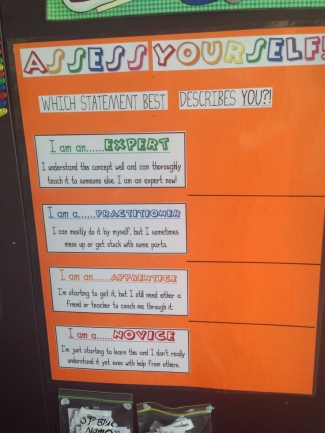 ASSESS YOURSELF!
WHICH STATEMENT BEST DESCRIBES YOU?!
I am an......EXPERT
I understand this concept well and can thoroughly
teach it to someone else. I am an expert now!
I am a......PRACTITIONER
I can mostly do it by myself, but I sometimes
mess up or get stuck with some parts.
I am an......APPRENTICE
I'm starting to get it, but I still need either a
friend or teacher to coach me through it.
I am a......NOVICE
I'm just starting to learn this and I don't really
understand it yet even with help from others.
Names